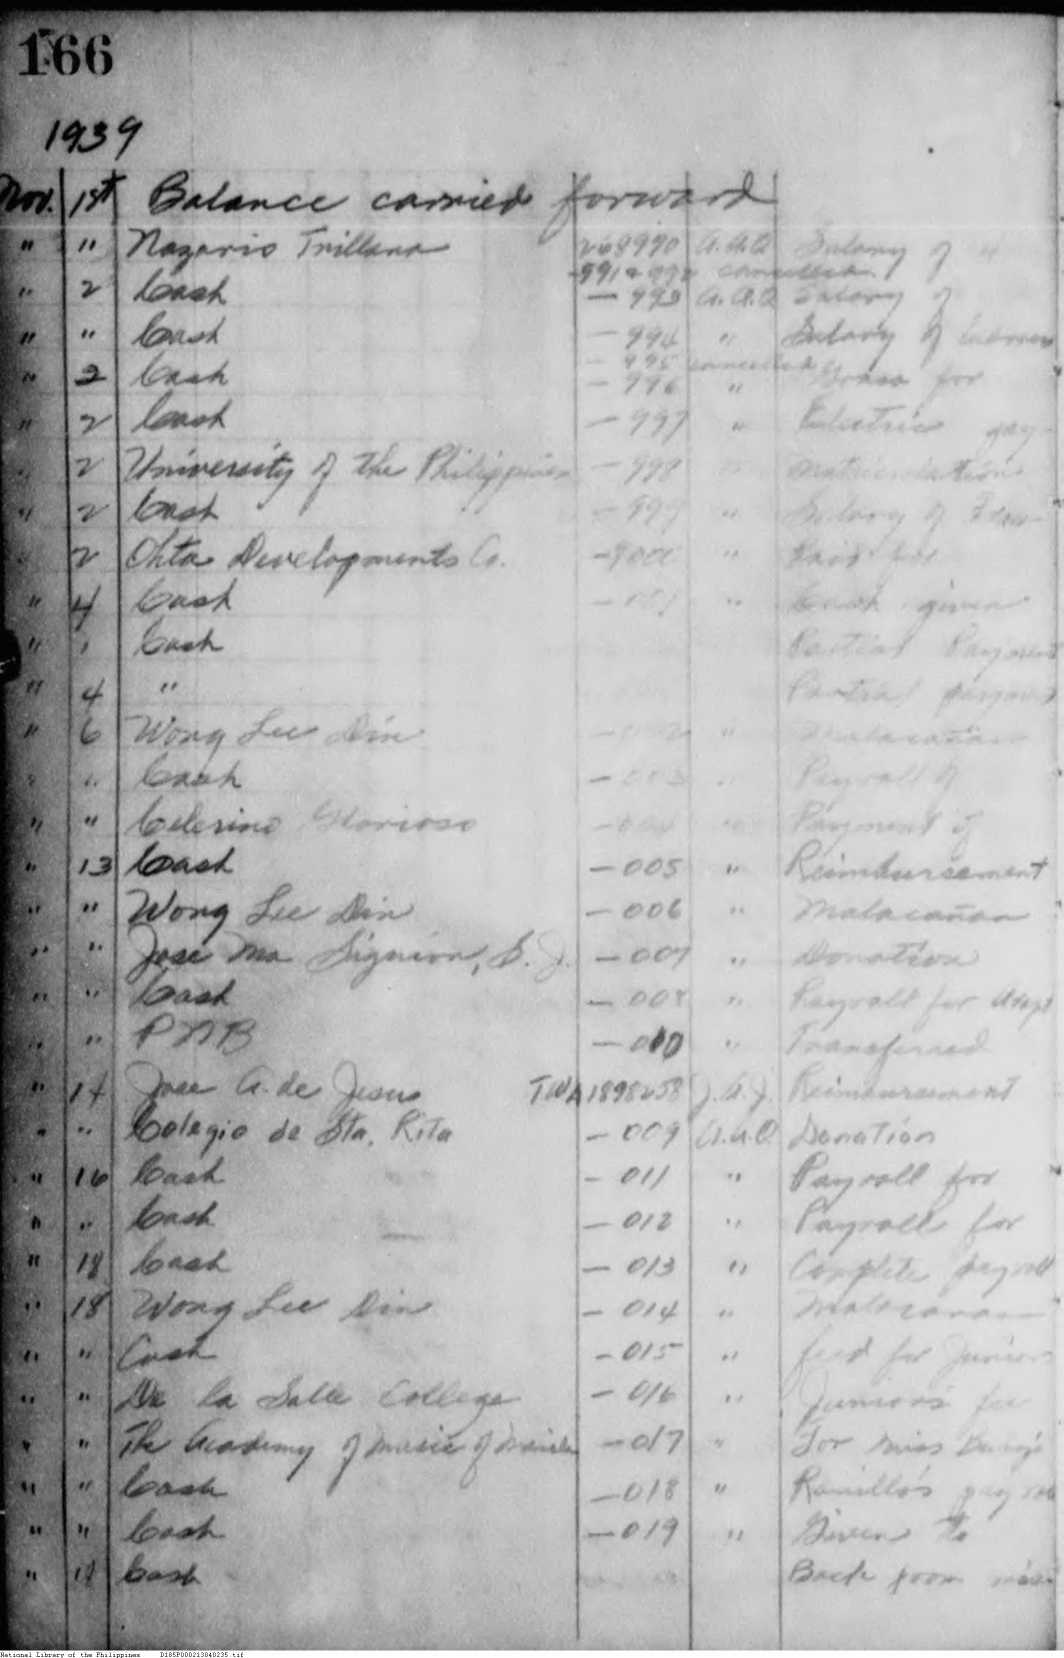 166
1939
Nov. 1st Balance carried forward
" " Nazario Trillana 268990 A.A.Q Salary of
-991 & 992 cancelled
" 2 Cash - 993 A.A.Q Salary of
" " Cash - 994 " Salary of laborers
- 995 cancelled
" 2 Cash - 996 " for
" 2 Cash - 997 " Electric pay-
" 2 University of the Philippines - 998 " matriculation
" 2 Cash - 999 " Salary of
" 2 Ohta Developments Co. -9000 " Paid for
" 4 Cash - 001 " Cash given
" " Cash Partial Payment
" 4 " Partial payment
" 6 Wong Lee Din - 002 " Malacañan
" " Cash - 003 " Payroll of
" " Celerino Glorioso - 004 " Payment of
" 13 Cash - 005 " Reimbursement
" " Wong Lee Din - 006 " Malacañan
" " Jose Ma Siguion, S. J. - 007 " Donation
" " Cash - 008 " Payroll for
" " PNB - 010 " Transferred
" 14 Jose A. de Jesus TWA1898258 J.A.J. Reimbursement
" " Colegio de Sta. Rita - 009 A.A.Q Donation
" 16 Cash - 011 " Payroll for
" " Cash - 012 " Payroll for
" 18 Cash - 013 " Complete payroll
" 18 Wong Lee Din - 014 " Malacanan
" " Cash - 015 " feed for Juniors
" " De la Salle College - 016 " Junior's fee
" " The Academy of Music of Manila - 017 " For Miss
" " Cash - 018 " Ramillo's pay
" " Cash - 019 " Given to
" 17 Cash Back from
National Library of the Philippines D185P000213040235.tif